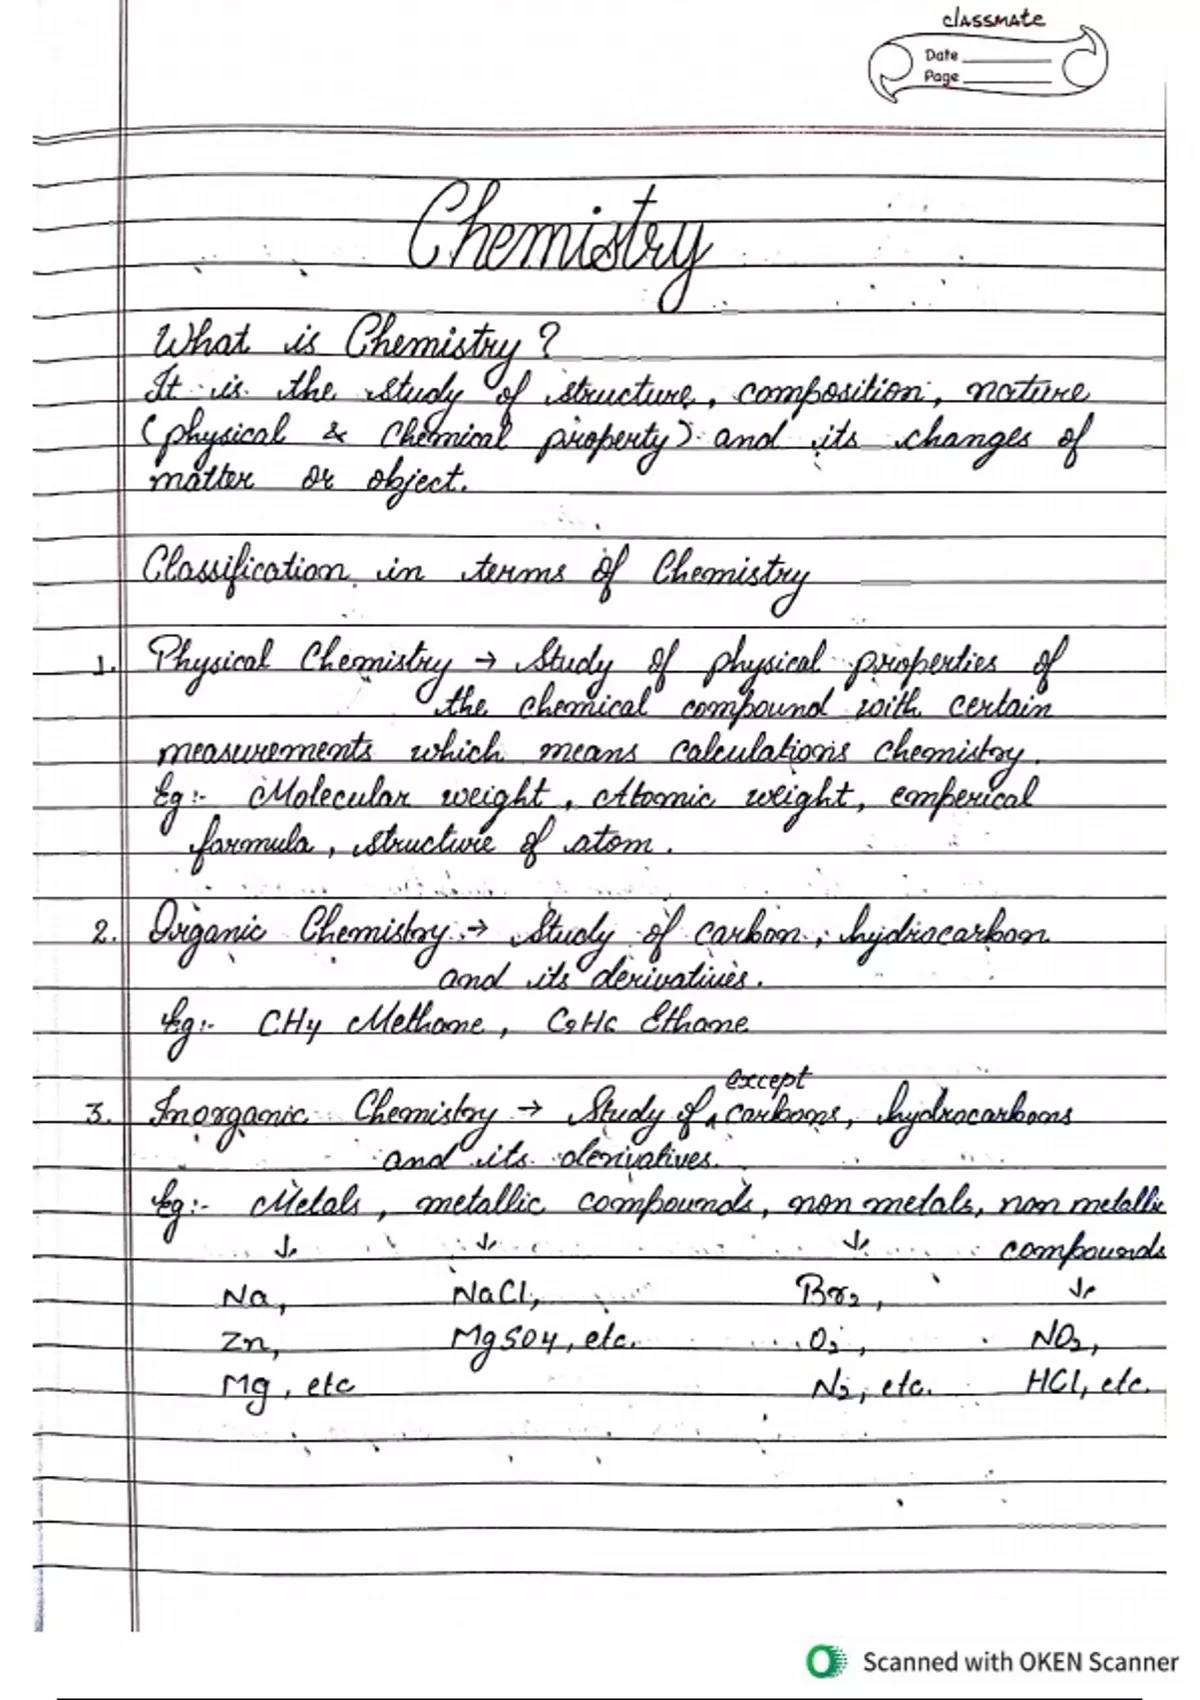 classmate
Date
Page
Chemistry
What is Chemistry?
It is the study of structure, composition, nature
(physical & chemical property) and its changes of
matter or object.
Classification in terms of Chemistry
1. Physical Chemistry → Study of physical properties of
the chemical compound with certain
measurements which means calculations chemistry.
Eg:- Molecular weight, Atomic weight, emperical
formula, structure of atom.
2. Organic Chemistry → Study of carbon, hydrocarbon
and its derivatives.
Eg:- CH4 Methane, C2H6 Ethane
except
3. Inorganic Chemistry → Study of ∧ carbons, hydrocarbons
and its derivatives.
Eg:- Metals, metallic compounds, non metals, non metallic
↓ ↓ ↓ compounds
Na, NaCl, Br2, ↓
Zn, MgSO4, etc. O2, NO2,
Mg, etc N2, etc. HCl, etc.
Scanned with OKEN Scanner